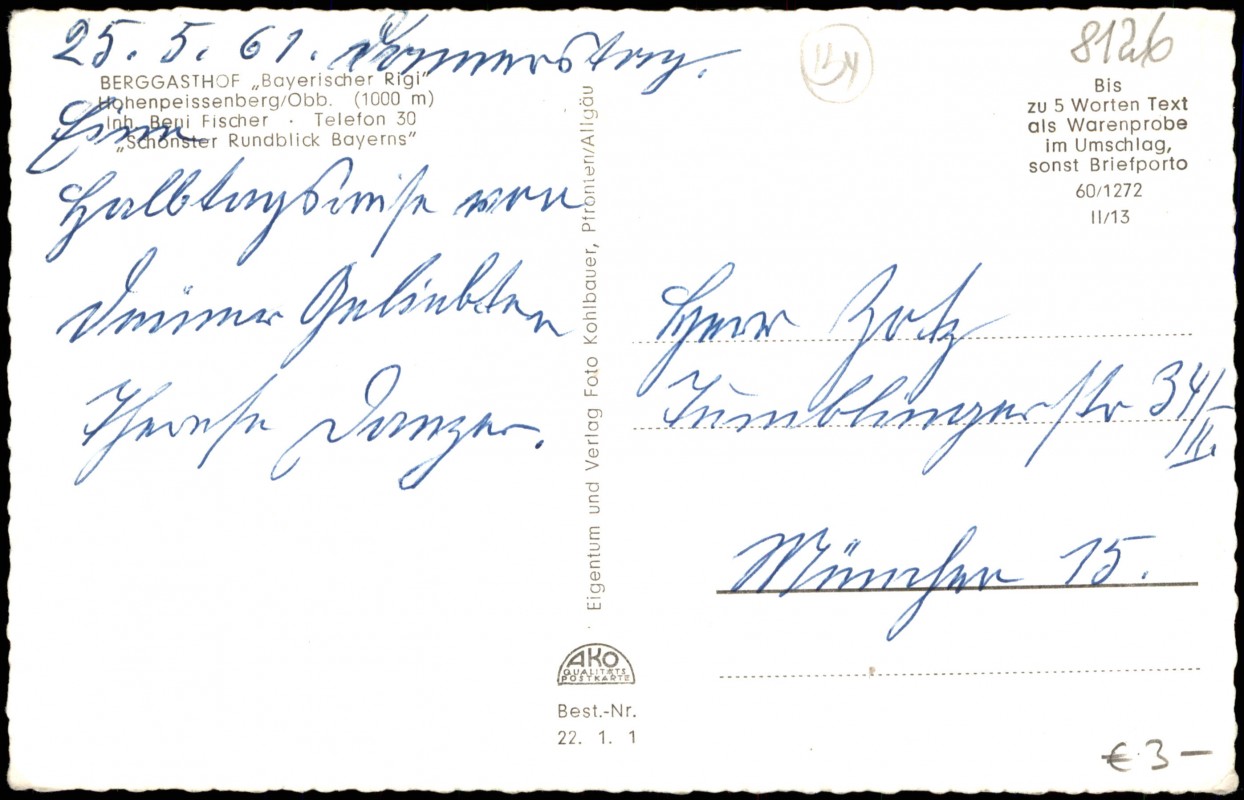 25. 5. 61. Donnerstag.
BERGGASTHOF „Bayerischer Rigi"
Hohenpeissenberg/Obb. (1000 m)
Inh. Beni Fischer · Telefon 30
„Schönster Rundblick Bayerns"
Eine
Halbtagsreise von
Deiner Geliebten
Therese Danzer.
Eigentum und Verlag Foto Kohlbauer, Pfronten/Allgäu
AKO
QUALITÄTS
POSTKARTE
Best.-Nr.
22. 1. 1
8126
Bis
zu 5 Worten Text
als Warenprobe
im Umschlag,
sonst Briefporto
60/1272
II/13
Herr Zotz
Tumblingerstr 34/
II.
München 15.
€ 3 —